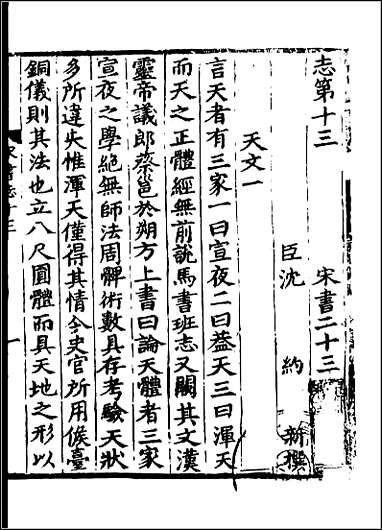 志第十三　宋書二十三
臣沈　約　新撰
天文一
言天者有三家一曰宣夜二曰蓋天三曰渾天
而天之正體經無前說馬書班志又闕其文漢
靈帝議郎蔡邕於朔方上書曰論天體者三家
宣夜之學絕無師法周髀術數具存考驗天狀
多所違失惟渾天僅得其情今史官所用候臺
銅儀則其法也立八尺圓體而具天地之形以